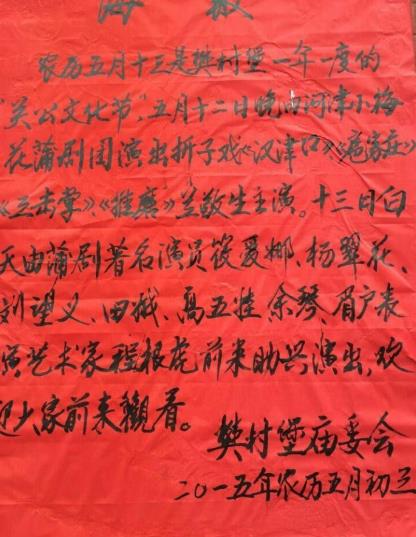 海报
农历五月十三是樊村堡一年一度的
"关公文化节",五月十二日晚由河津小梅
花蒲剧团演出折子戏《汉津口》《扈家庄》
《三击掌》、《推磨》兰敬生主演。十三日白
天由蒲剧著名演员筱爱娜、杨翠花、
刘望义、田、高五牲、余琴、眉户表
演艺术家程根虎前来助兴演出,欢
迎大家前来觀看。
樊村堡庙委会
二〇一五年农历五月初三